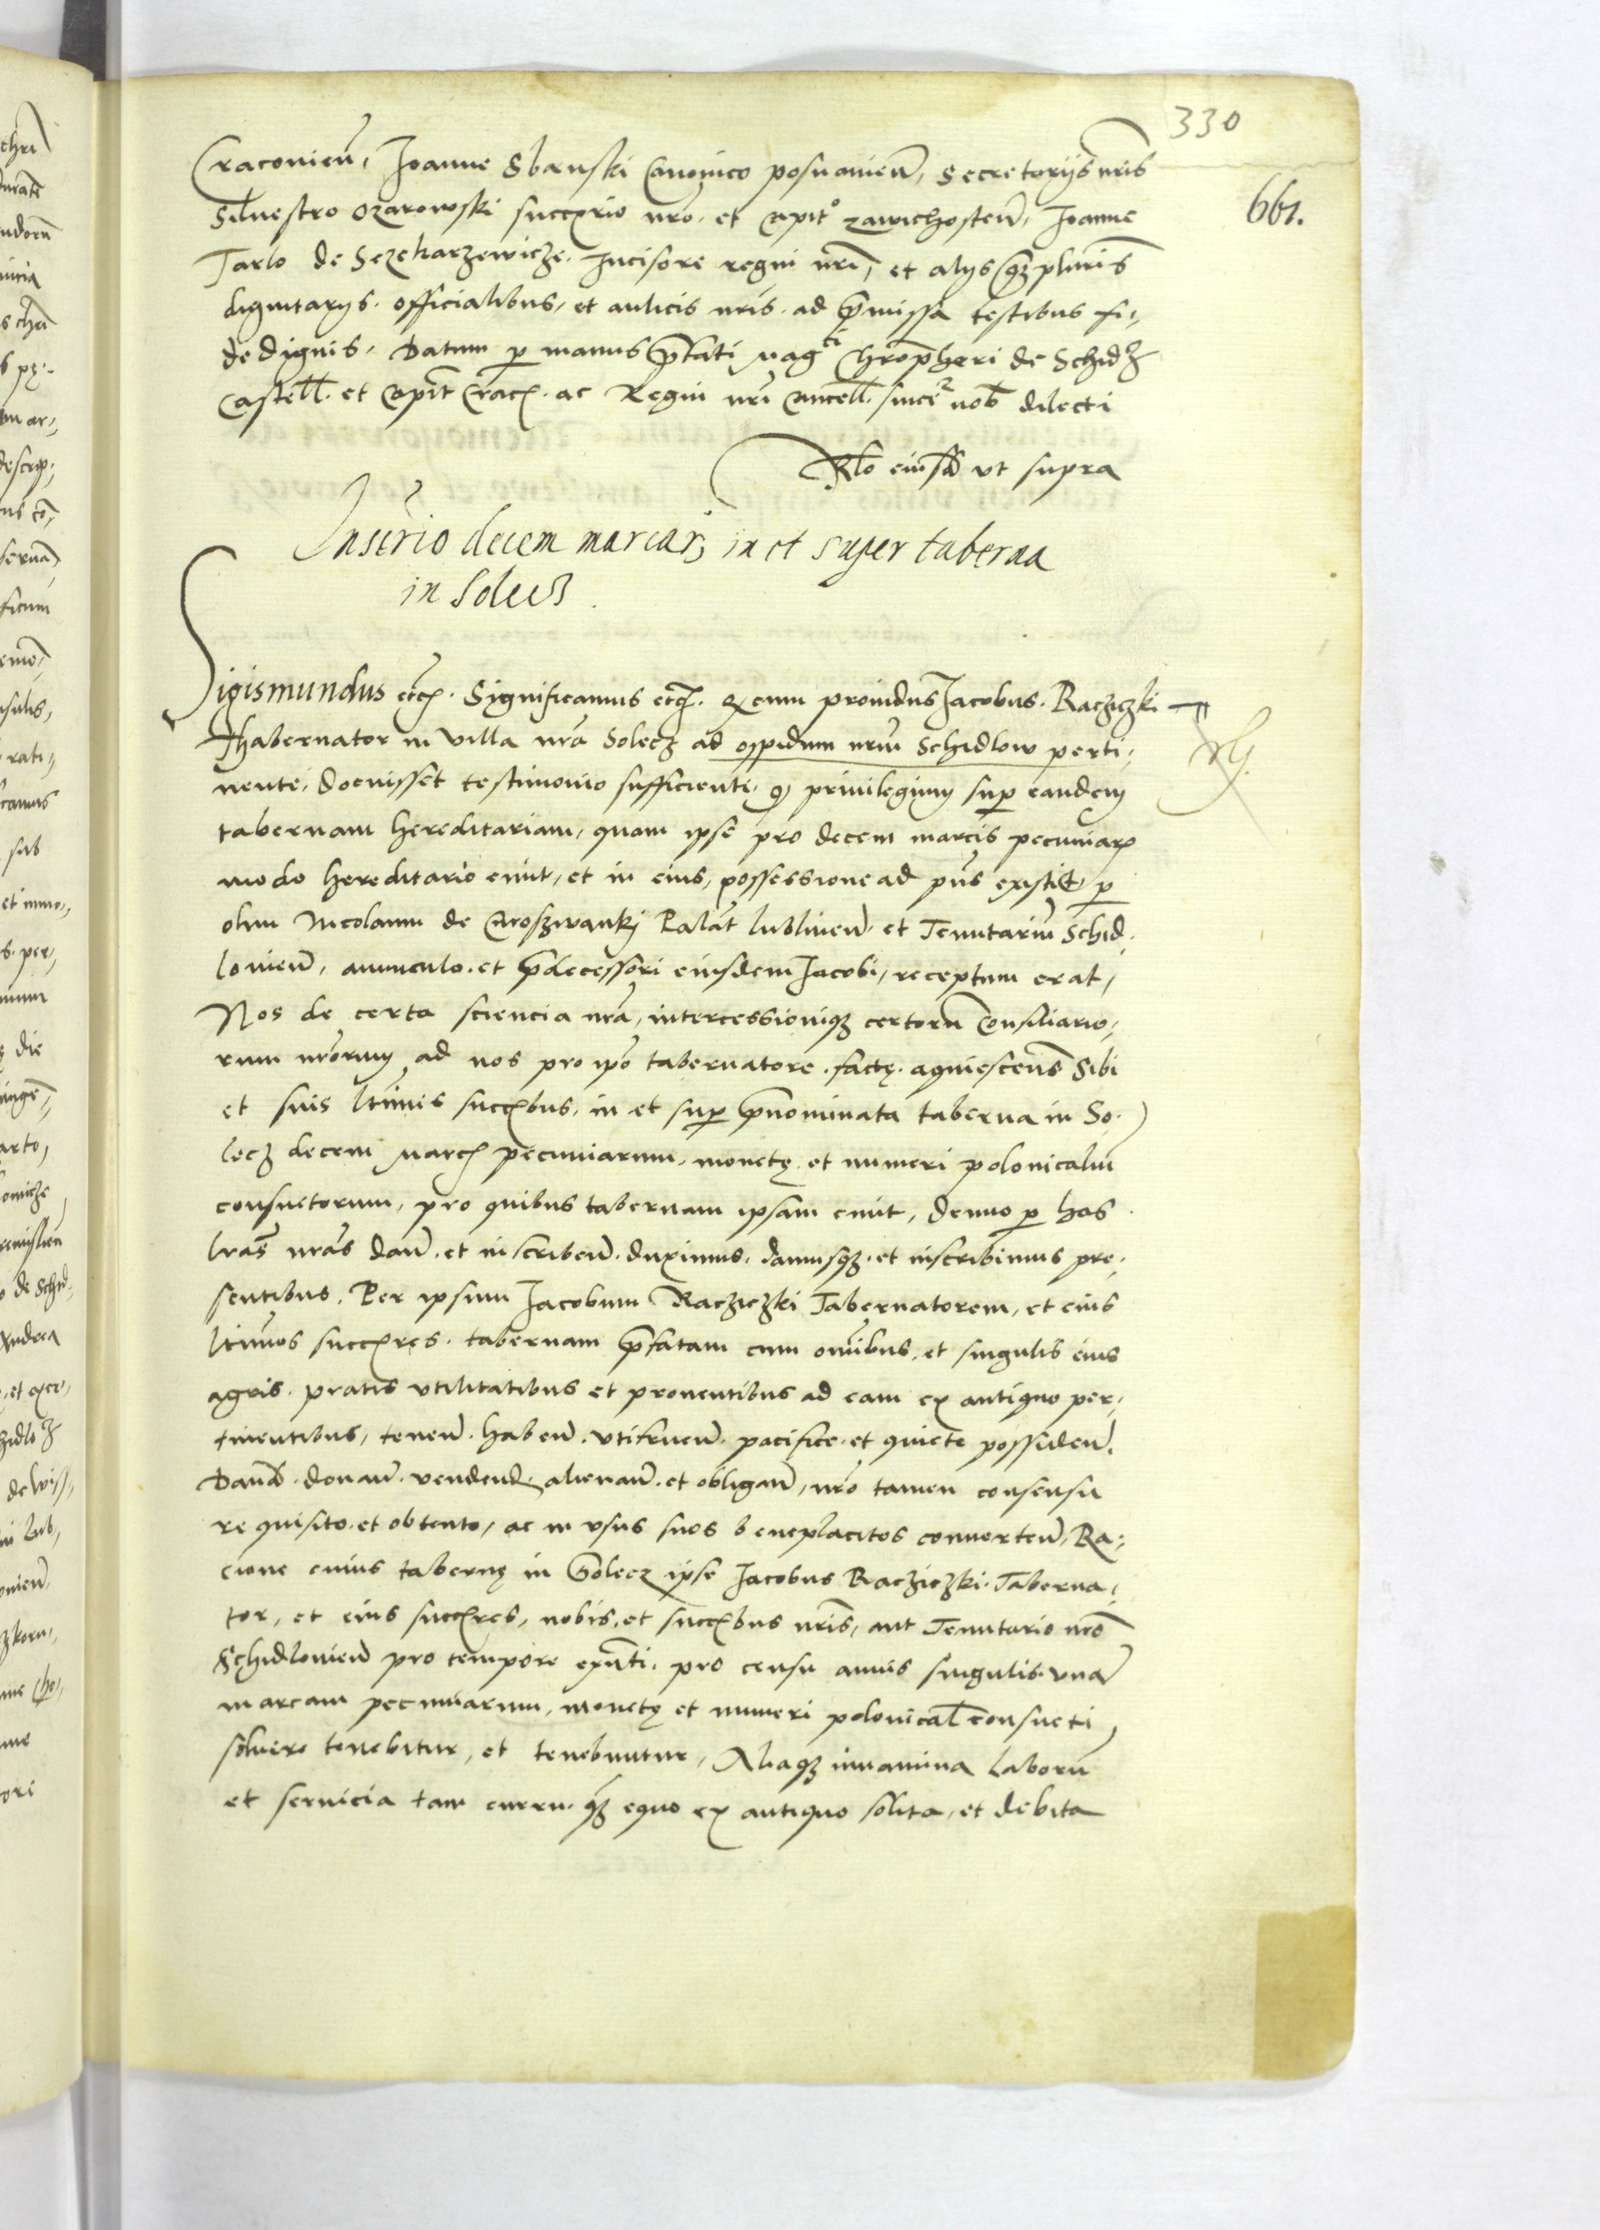 330
661.
Cracovien̄, Joanne Sbanski Canonico posnanien̄, Secretarijs nr̄is
Silvestro Ozarowski succ̄rio nr̄o, et capit° zawichosten̄, Joanne
Tarlo de Sczekarzewicze, Incisore regni nr̄i, et alijs q̄z plurīs
dignitarijs, officialibus, et aulicis nr̄is, ad p̄missa testibus fi,
de dignis, Datum p manus p̄fati Mag^ci Chrop̄heri de Schidlow
Castell̄, et Capit̄ Crac̄, ac Regni nr̄i Cancell̄, sincē nob̄ dilecti
Rl̄o eiusd̄ ut supra
Inscr̄io decem marcar̄, in et super taberna
in Solecz.
Sigismundus etc̄. Significamus etc̄. Q cum providus Jacobus Racziczki
Thabernator in Villa nr̄a Solecz ad oppidum nr̄um Schidlow perti,
nente, docuisset testimonio sufficienti, q̄ privilegium sup eandem
tabernam hereditariam, quam ipse pro decem marcis pecuniar̄
modo hereditario emit, et in eius, possessione ad pn̄s existit, p
olim Nicolaum de Croszwanki Palat̄ lublinen̄ et Tenutariū Schid,
lovien̄, avunculo, et p̄decessori eiusdem Jacobi, receptum erat,
Nos de certa sciencia nr̄a, intercessioniq̄z certorū Consiliario,
rum nr̄orum ad nos pro ip̄o tabernatore factę acquiescen̄s Sibi
et suis lt̄imis succ̄ibus, in et sup p̄nominata taberna in So,
lecz decem marc̄ pecuniarum, monetę et numeri polonicaliū
consuetorum, pro quibus tabernam ipsam emit, denuo p has
lr̄as nr̄as dan̄, et inscriben̄ duximus, damusq̄z et inscribimus pre,
sentibus, Per ipsum Jacobum Racziczki Tabernatorem, et eius
lt̄imos succ̄res tabernam p̄fatam cum om̄ibus, et singulis eius
agris, pratis utilitatibus et proventibus ad eam ex antiquo per,
tinentibus, tenen̄, haben̄, utifruen̄, pacifice et quiete possiden̄,
Dand̄, donan̄, vendend̄, alienan̄, et obligan̄, nr̄o tamen consensu
requisito, et obtento, ac in usus suos beneplacitos converten̄, Ra,
cione cuius tabernę in Solecz ipse Jacobus Racziczki Taberna,
tor, et eius succ̄res, nobis, et succ̄ibus nr̄is, aut Tenutario nr̄o
Schidlovien̄ pro tempore exn̄ti, pro censu annis singulis unā
marcam pecuniarum, monetę et numeri polonical̄ consueti
solvere tenebitur, et tenebuntur, Aliaq̄z iuvamina laborū
et servicia tam curru q̄z equo ex antiquo solita, et debita